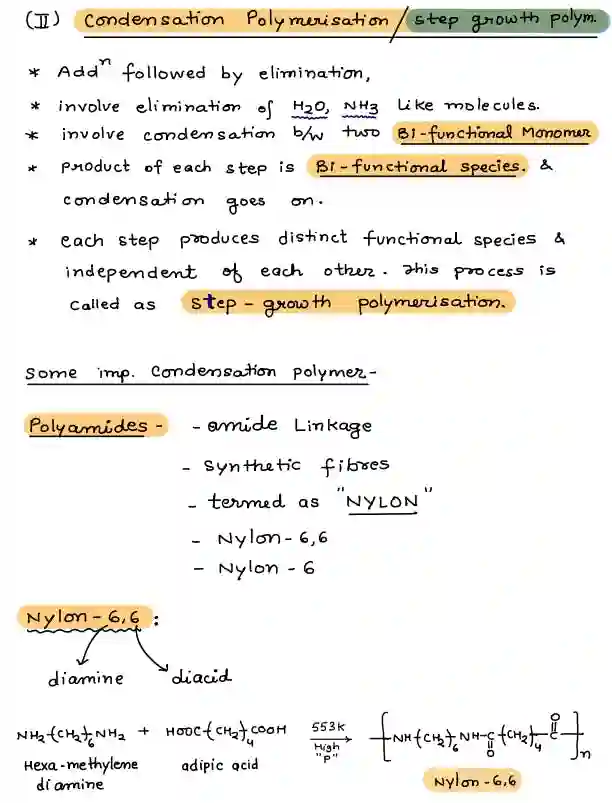 (II) Condensation Polymerisation / step growth polym.
* Addⁿ followed by elimination,
* involve elimination of H2O, NH3 Like molecules.
* involve condensation b/w two Bi-functional Monomer
* product of each step is Bi-functional species. &
condensation goes on.
* each step produces distinct functional species &
independent of each other. This process is
called as step-growth polymerisation.
Some imp. Condensation polymer-
Polyamides - - amide Linkage
- Synthetic fibres
- termed as "NYLON"
- Nylon-6,6
- Nylon - 6
Nylon-6,6 :
diamine diacid
NH2-(CH2)6-NH2 + HOOC-(CH2)4-COOH 553K High "P" → [-NH-(CH2)6-NH-C(=O)-(CH2)4-C(=O)-]n
Hexa-methylene adipic acid Nylon-6,6
diamine